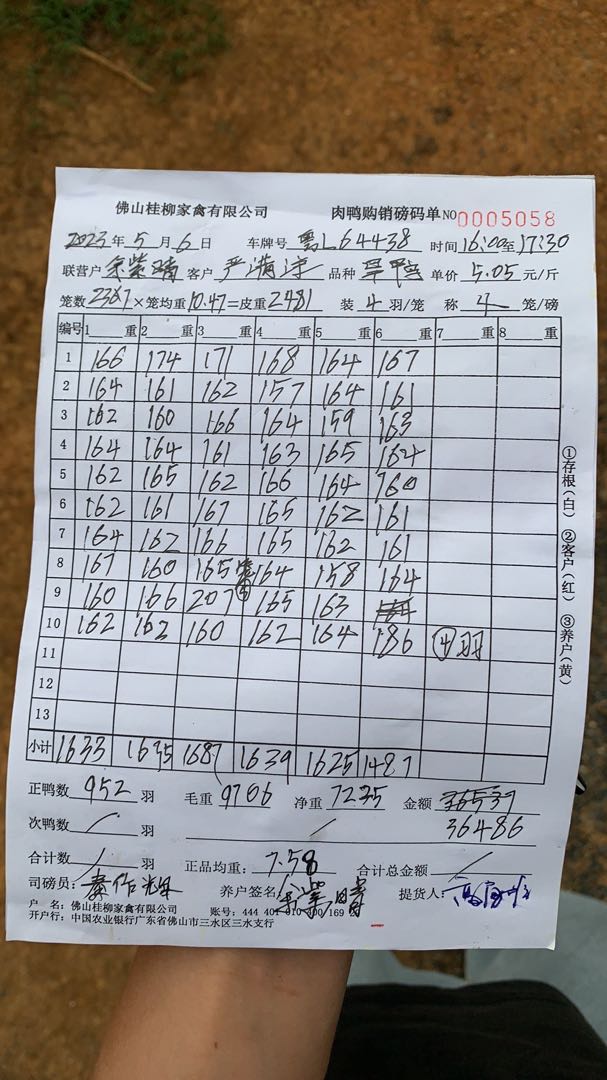 佛山桂柳家禽有限公司 肉鸭购销磅码单 NO 0005058
2023年5月6日 车牌号 粤L64438 时间16:00至17:30
联营户 余紫晴 客户 严满洪 品种 旱鸭 单价 5.05 元/斤
笼数 237 ×笼均重 10.47 =皮重 2481 装 4 羽/笼 称 4 笼/磅
编号 1 重 2 重 3 重 4 重 5 重 6 重 7 重 8 重
1 166 174 171 168 164 167
2 164 161 162 157 164 161
3 162 160 166 164 159 163
4 164 164 161 163 165 164
5 162 165 162 166 164 160
6 162 161 167 165 162 161
7 164 162 166 165 162 161
8 167 160 165 164 158 164
9 160 166 207 ⑤ 165 163
10 162 162 160 162 164 186 ④羽
11
12
13
小计 1633 1635 1687 1639 1625 1487
正鸭数 952 羽 毛重 9706 净重 7225 金额 36537
次鸭数 / 羽 / 36486
合计数 / 羽 正品均重: 7.58 合计总金额 /
司磅员: 秦作 养户签名: 余紫晴 提货人:
户 名: 佛山桂柳家禽有限公司 账号: 444 401 010 00 169
开户行: 中国农业银行广东省佛山市三水区三水支行
①存根(白) ②客户(红) ③养户(黄)